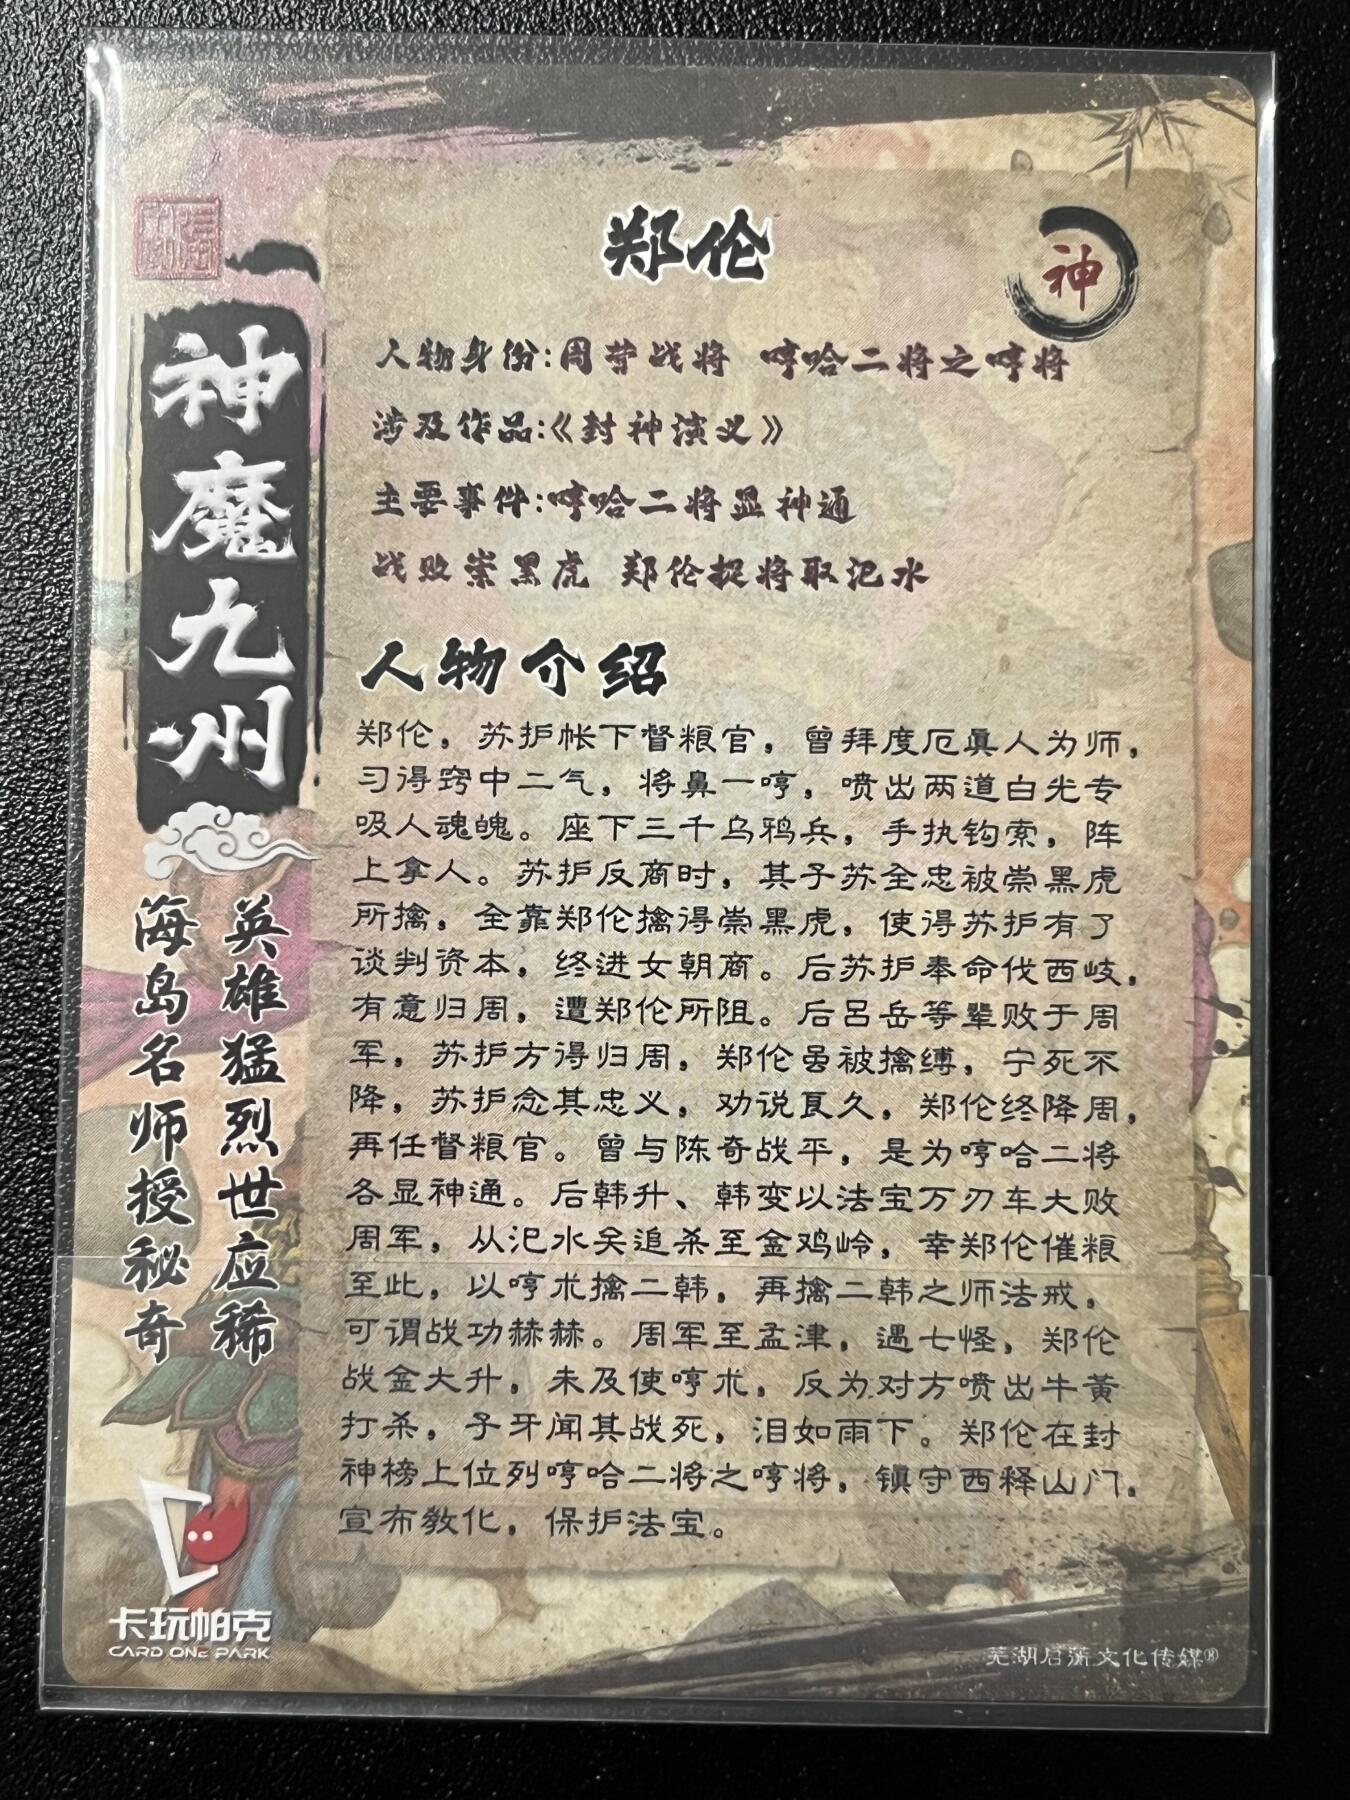 郑伦
神
人物身份:周营战将 哼哈二将之哼将
涉及作品:《封神演义》
主要事件:哼哈二将显神通
战败崇黑虎 郑伦捉将取汜水
人物介绍
郑伦，苏护帐下督粮官，曾拜度厄真人为师，
习得窍中二气，将鼻一哼，喷出两道白光专
吸人魂魄。座下三千乌鸦兵，手执钩索，阵
上拿人。苏护反商时，其子苏全忠被崇黑虎
所擒，全靠郑伦擒得崇黑虎，使得苏护有了
谈判资本，终进女朝商。后苏护奉命伐西岐，
有意归周，遭郑伦所阻。后吕岳等辈败于周
军，苏护方得归周，郑伦虽被擒缚，宁死不
降，苏护念其忠义，劝说良久，郑伦终降周，
再任督粮官。曾与陈奇战平，是为哼哈二将
各显神通。后韩升、韩变以法宝万刃车大败
周军，从汜水关追杀至金鸡岭，幸郑伦催粮
至此，以哼术擒二韩，再擒二韩之师法戒，
可谓战功赫赫。周军至孟津，遇七怪，郑伦
战金大升，未及使哼术，反为对方喷出牛黄
打杀，子牙闻其战死，泪如雨下。郑伦在封
神榜上位列哼哈二将之哼将，镇守西释山门，
宣布教化，保护法宝。
神魔九州
英雄猛烈世应稀
海岛名师授秘奇
卡玩帕克
CARD ONE PARK
芜湖启蒲文化传媒®